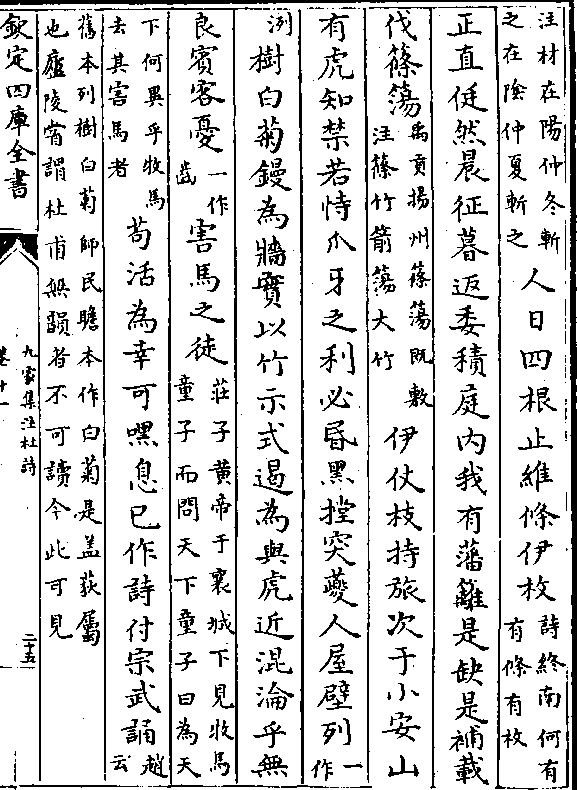 注材在陽仲冬斬
之在隂仲夏斬之
人日四根止維條伊枚
詩終南何有
有條有枚
正直徒然晨征暮返委積庭内我有藩籬是缺是補載
伐篠簜
禹貢揚州篠簜既敷
注篠竹箭簜大竹
伊仗枝持旅次于小安山
有虎知禁若恃爪牙之利必昏黑摚突夔人屋壁列
一作
洌
樹白菊鏝為牆實以竹示式遏為與虎近混淪乎無
良賓客憂
一作
齒
害馬之徒
莊子黄帝于襄城下見牧馬
童子而問天下童子曰為天
下何異乎牧馬
去其害馬者
苟活為幸可嘿息已作詩付宗武誦
趙
云
舊本列樹白菊師民瞻本作白菊是盖荻屬
也廬陵嘗謂杜甫無韻者不可讀今此可見
欽定四庫全書
九家集注杜詩
卷十一
二十五